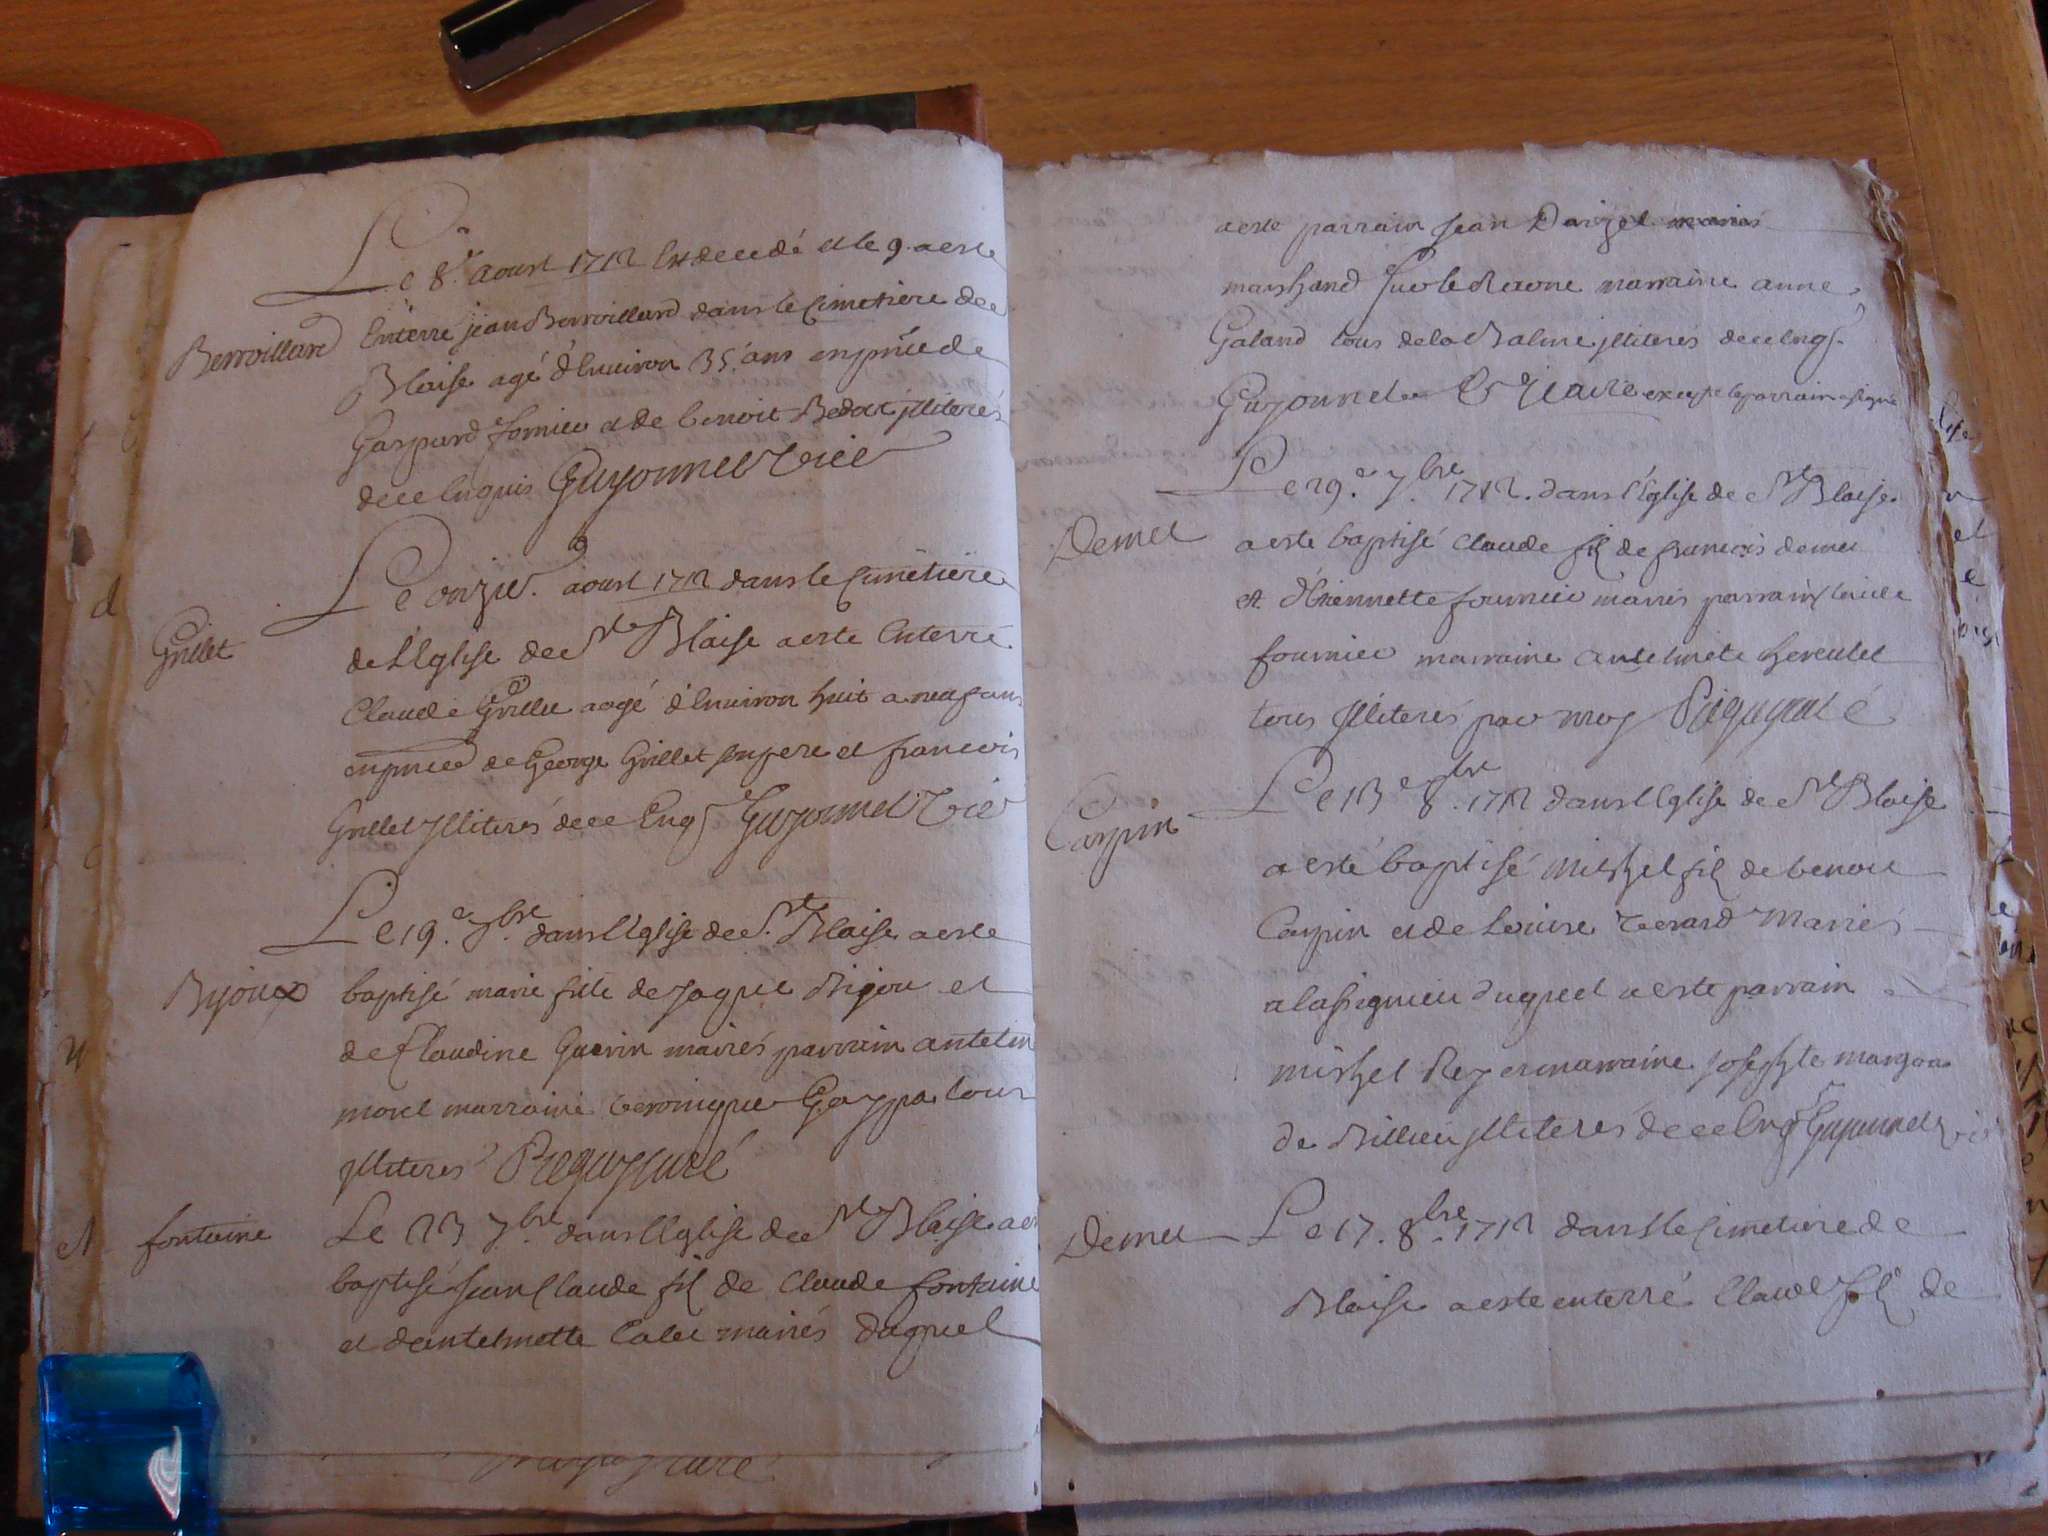 Le 8.e aoust 1712 Est decedé et le 9. a esté
Berroillard
Enterré jean Berroillard dans le Cimetiere de
Blaise agé d'Environ 35. ans en pnce de
Gaspard fornier et de benoit Bedat jlliterés
de ce Enquis Guyonnet vic
Le onzie. aoust 1712 dans le Cimetiere
Grillet
de l'Eglise de St Blaise a esté Enterré
Claude Grillet aagé d'Environ huit a neuf ans
en pnce de George Grillet son pere et francois
Grillet Jlliterés de ce Enqs Guyonnet vic
Le 19.e 7.bre dans l'Eglise de St Blaise a esté
Bijoux
baptisé marie fille de Jaque Bijou et
de Claudine Guerin mariés parrain antelm
morel marraine veronique tous
jlliterés curé
fontaine
Le 23 7.bre dans l'Eglise de St Blaise a es
baptisé Jean Claude fil de Claude fontaine
et d'antelmette mariés duquel
curé
a esté parrain Jean mariés
marchand sur le Raone marraine anne
Galand tous de la Balme jlliterés de ce Enqs.
Guyonnet vicaire excepté le parrain a signé
Le 29.e 7.bre 1712. dans l'Eglise de St Blaise
Demet
a esté baptisé Claude fil de francois demet
et d'Etiennette fournier mariés parrain
fournier marraine antelmete herculet
tous Jlliterés par moy curé
Le 13e 8.bre 1712 dans l'Eglise de St Blaise
Carpin
a esté baptisé michel fil de benoit
Carpin et de Louise Verard Mariés
a lassignieu duquel a esté parrain
michel Rey et marraine Josephte
de Billieu jlliterés de ce Enqs Guyonnet vic
Demet
Le 17. 8.bre 1712 dans le Cimetiere de
Blaise a esté enterré Claude fil de